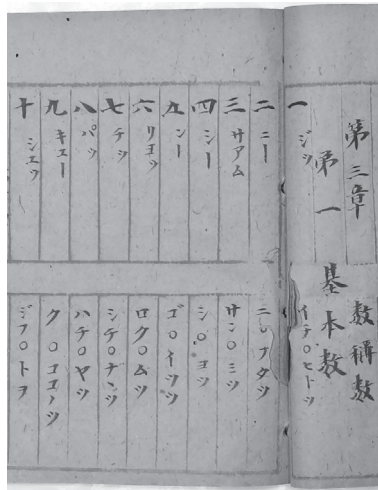 第三章 数稱数
第一 基本数
一 ジツ イチ○ヒトツ
二 ニー ニ○フタツ
三 サアム サン○ミツ
四 シー シ○ヨツ
五 ンー ゴ○イツツ
六 リヨツ ロク○ムツ
七 チツ シチ○ナヽツ
八 パツ ハチ○ヤツ
九 キエー ク○ココノツ
十 シエツ ジフ○トヲ